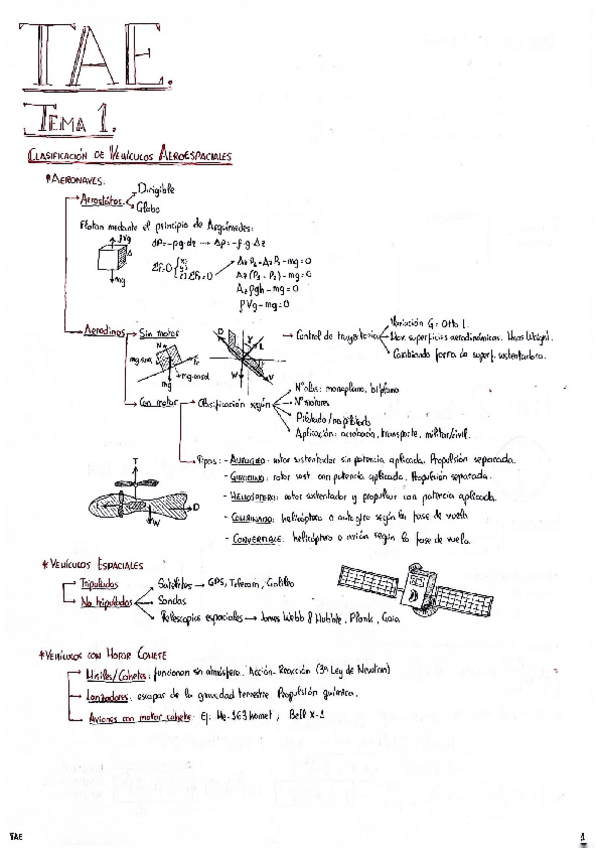 TAE.
TEMA 1.
CLASIFICACIÓN DE VEHÍCULOS AEROESPACIALES
* AERONAVES.
→ Aerostatos.
Dirigible
Globo
Flotan mediante el principio de Arquímedes:
ρVg
A
mg
dP=-ρg·dz → ΔP=-ρ·g·Δz
ΣF=0
ΣFz=0
- mg = 0
(P₂-P₁) - mg = 0
ρgh - mg = 0
ρVg - mg = 0
→ Aerodinos
→ Sin motor
N
mg
D
L
W
V
→ Control de trayectoria
Variación G: Otto L.
Mov. superficies aerodinámicas. Hnos Wright.
Cambiando forma de superf. sustentadora.
→ Con motor
→ Clasificación según
Nº alas: monoplano, biplano
Nº motores
Pilotado/no pilotado
Aplicación: acrobacia, transporte, militar/civil.
→ Tipos: - AUTOGIRO: rotor sustentador sin potencia aplicada. Propulsión separada.
- GIRODINO: rotor sust. con potencia aplicada. Propulsión separada.
- HELICÓPTERO: rotor sustentador y propulsor con potencia aplicada.
- COMBINADO: helicóptero o autogiro según la fase de vuelo
- CONVERTIBLE: helicóptero o avión según la fase de vuelo.
T
D
W
* VEHÍCULOS ESPACIALES
→ Tripulados
→ No tripulados
Satélites → GPS, Telecom, Galileo
Sondas
Telescopios espaciales → James Webb & Hubble, Plank, Gaia
* VEHÍCULOS CON MOTOR COHETE
→ Misiles/Cohetes: funcionan sin atmósfera. Acción-Reacción (3ª Ley de Newton)
→ Lanzadores: escapar de la gravedad terrestre. Propulsión química.
→ Aviones con motor cohete. Ej: Me-163 Komet ; Bell X-1
TAE
1